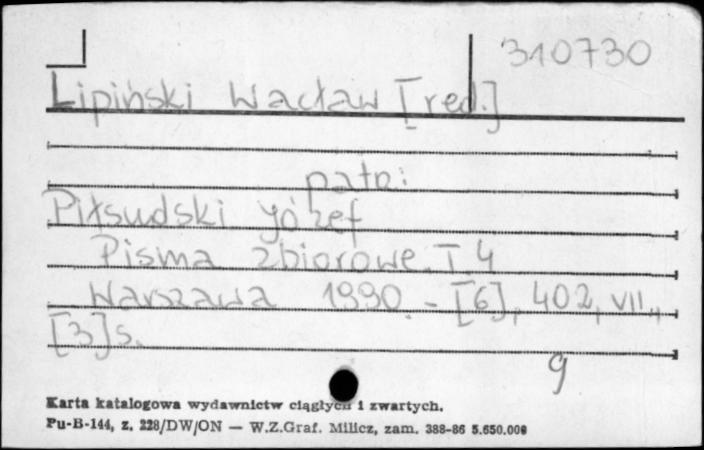 310730
Lipiński Wacław [red.]
patrz:
Piłsudski Józef
Pisma zbiorowe. T. 4
Warszawa 1990. - [6], 402, VII,,
[3] s.
9
Karta katalogowa wydawnictw ciągłych i zwartych.
Pu-B-144, z. 228/DW/ON — W.Z.Graf. Milicz, zam. 388-86 5.650.000